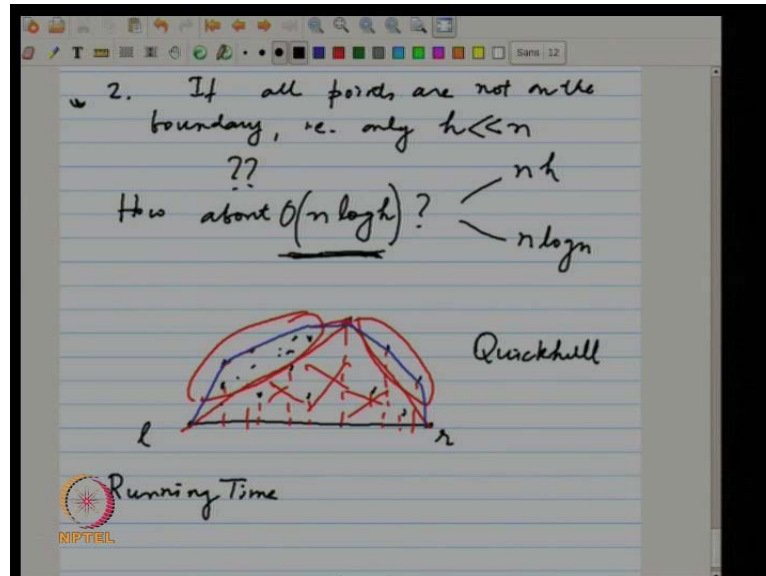 Sans 12
2. If all points are not on the
boundary, ie. only h<<n
??
nh
How about O(n logh) ?
n logn
Quickhull
l
r
Running Time
NPTEL